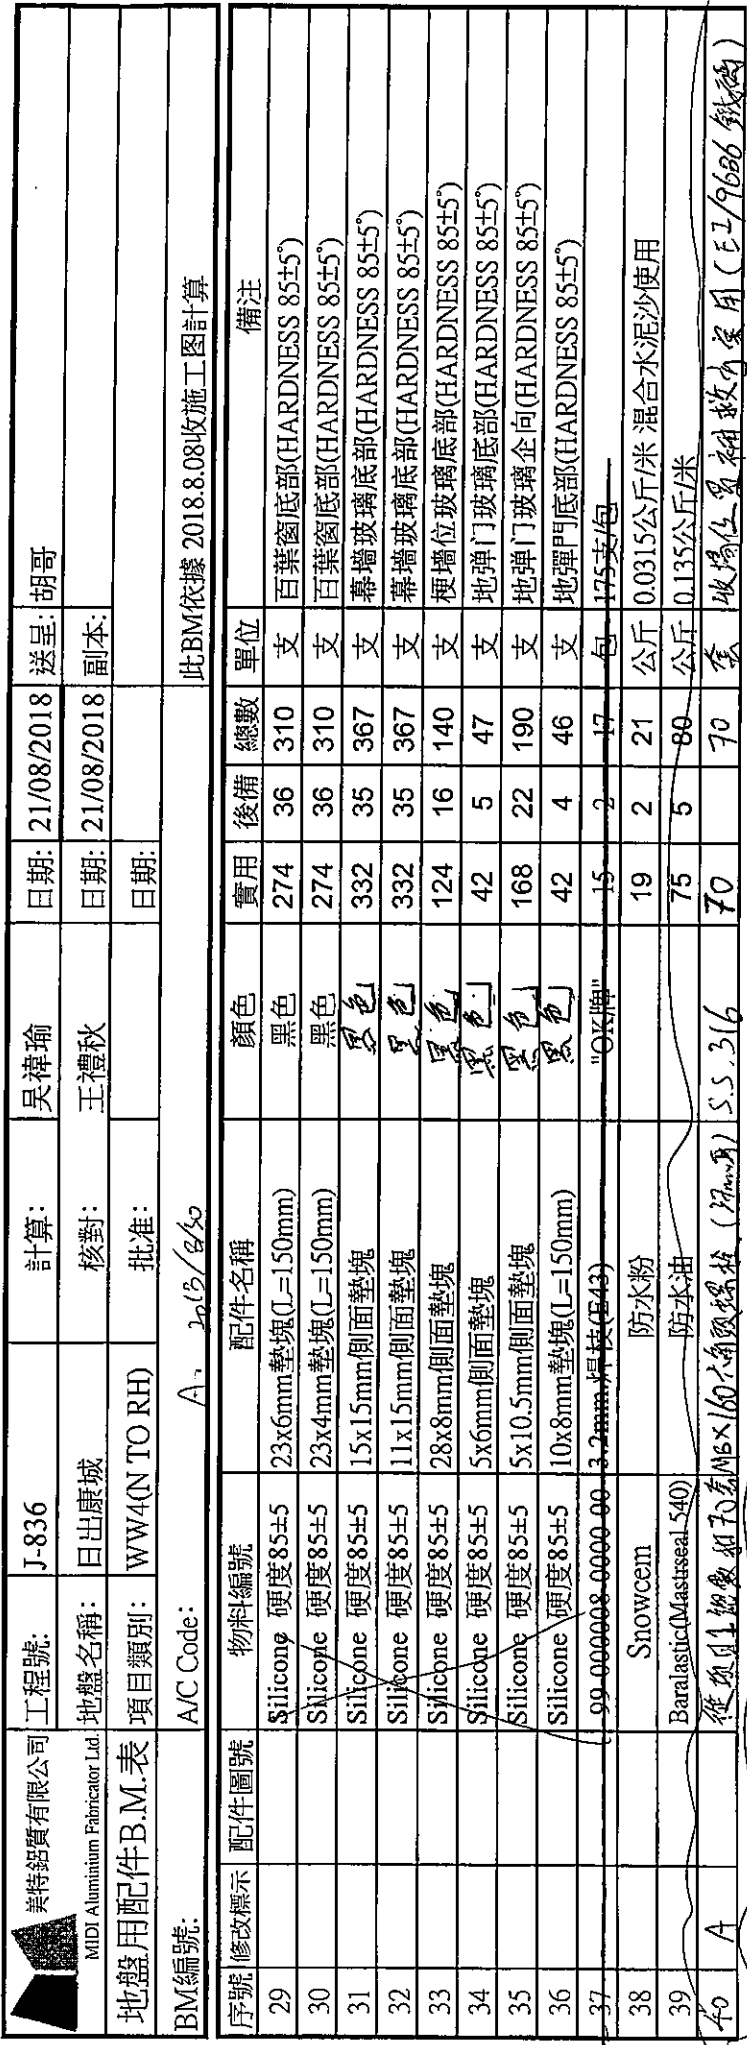 美特鋁質有限公司 工程號: J-836 計算: 吴禕瑜 日期: 21/08/2018 送呈: 胡哥
MIDI Aluminium Fabricator Ltd. 地盤名稱: 日出康城 核對: 王禮秋 日期: 21/08/2018 副本:
地盤用配件B.M.表 項目類別: WW4(N TO RH) 批准: 日期:
BM編號: A/C Code: A. 此BM依據 2018.8.08收施工图計算
序號 修改標示 配件圖號 物料編號 配件名稱 顏色 實用 後備 總數 單位 備注
29 Silicone 硬度85±5 23x6mm墊塊(L=150mm) 黑色 274 36 310 支 百葉窗底部(HARDNESS 85±5°)
30 Silicone 硬度85±5 23x4mm墊塊(L=150mm) 黑色 274 36 310 支 百葉窗底部(HARDNESS 85±5°)
31 Silicone 硬度85±5 15x15mm側面墊塊 黑色 332 35 367 支 幕墙玻璃底部(HARDNESS 85±5°)
32 Silicone 硬度85±5 11x15mm側面墊塊 黑色 332 35 367 支 幕墙玻璃底部(HARDNESS 85±5°)
33 Silicone 硬度85±5 28x8mm側面墊塊 黑色 124 16 140 支 梗墙位玻璃底部(HARDNESS 85±5°)
34 Silicone 硬度85±5 5x6mm側面墊塊 黑色 42 5 47 支 地弹门玻璃底部(HARDNESS 85±5°)
35 Silicone 硬度85±5 5x10.5mm側面墊塊 黑色 168 22 190 支 地弹门玻璃企向(HARDNESS 85±5°)
36 Silicone 硬度85±5 10x8mm墊塊(L=150mm) 黑色 42 4 46 支 地彈門底部(HARDNESS 85±5°)
37 99-000008-0000-00 3.2mm焊枝(E43) "OK牌" 15 2 17 包 175支/包
38 Snowcem 防水粉 19 2 21 公斤 0.0315公斤/米 混合水泥沙使用
39 Baralastic(Mastrseal 540) 防水油 75 5 80 公斤 0.135公斤/米
40 A M8×160六角頭螺栓 S.S.316 70 70 套